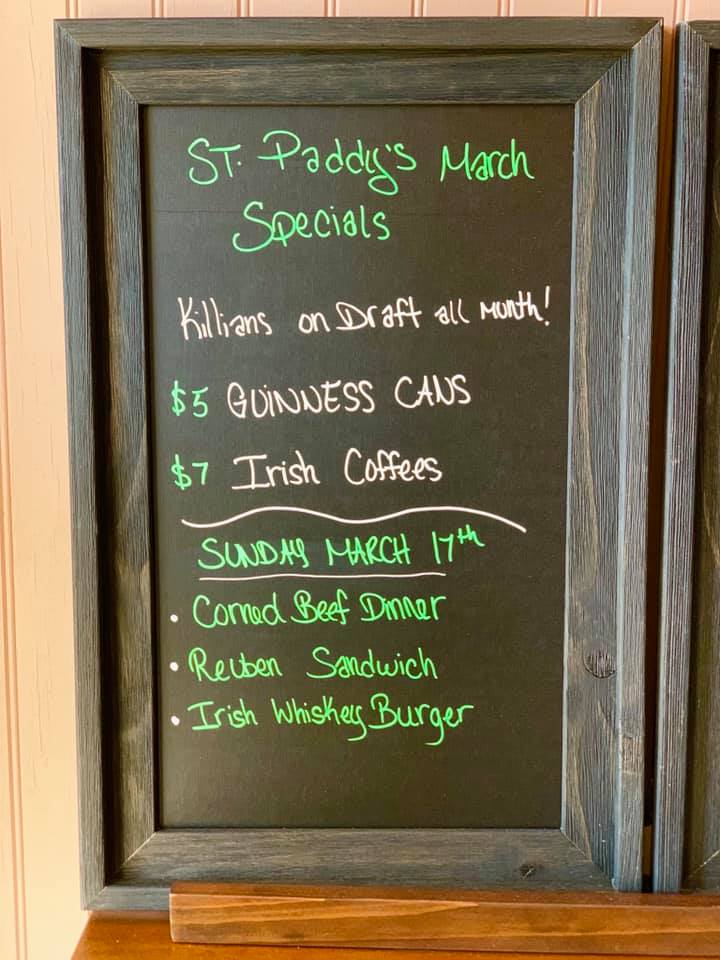 ST. Paddy's March
Specials
Killians on Draft all Month!
$5 GUINNESS CANS
$7 Irish Coffees
SUNDAY MARCH 17th
• Corned Beef Dinner
• Reuben Sandwich
• Irish Whiskey Burger